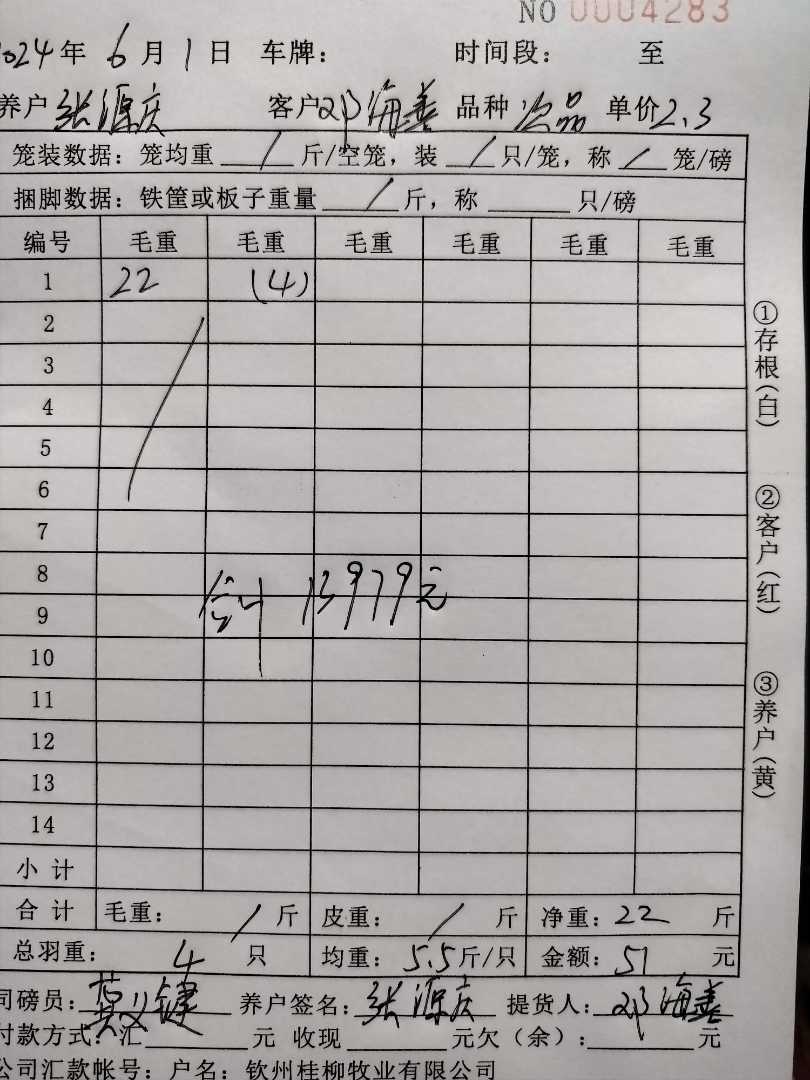 NO 0004283
2024年 6月 1日 车牌: 时间段: 至
养户 张源庆 客户 邓海善 品种 次品 单价 2.3
笼装数据: 笼均重 / 斤/空笼, 装 / 只/笼, 称 / 笼/磅
捆脚数据: 铁筐或板子重量 / 斤, 称 只/磅
编号 毛重 毛重 毛重 毛重 毛重 毛重
1 22 (4)
2
3
4
5
6
7
8
合计 13979元
9
10
11
12
13
14
小计
合计 毛重: / 斤 皮重: / 斤 净重: 22 斤
总羽重: 4 只 均重: 5.5斤/只 金额: 51 元
司磅员: 莫义键 养户签名: 张源庆 提货人: 邓海善
付款方式: 汇 元 收现 元欠(余): 元
公司汇款帐号: 户名: 钦州桂柳牧业有限公司
①存根(白)
②客户(红)
③养户(黄)